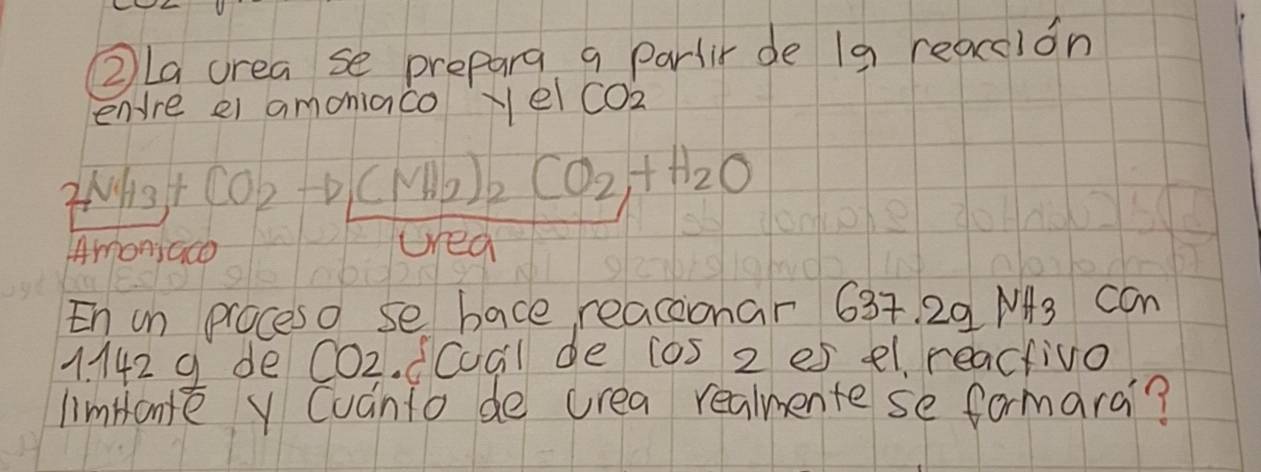 ② La urea se prepara a partir de la reacción
entre el amoniaco y el CO2
2NH3 + CO2 → (NH2)2 CO2 + H2O
Amoniaco Urea
En un proceso se hace reaccionar 637.2g NH3 con
1.142 g de CO2. ¿Cual de los 2 es el reactivo
limitante y Cuánto de urea realmente se formará?